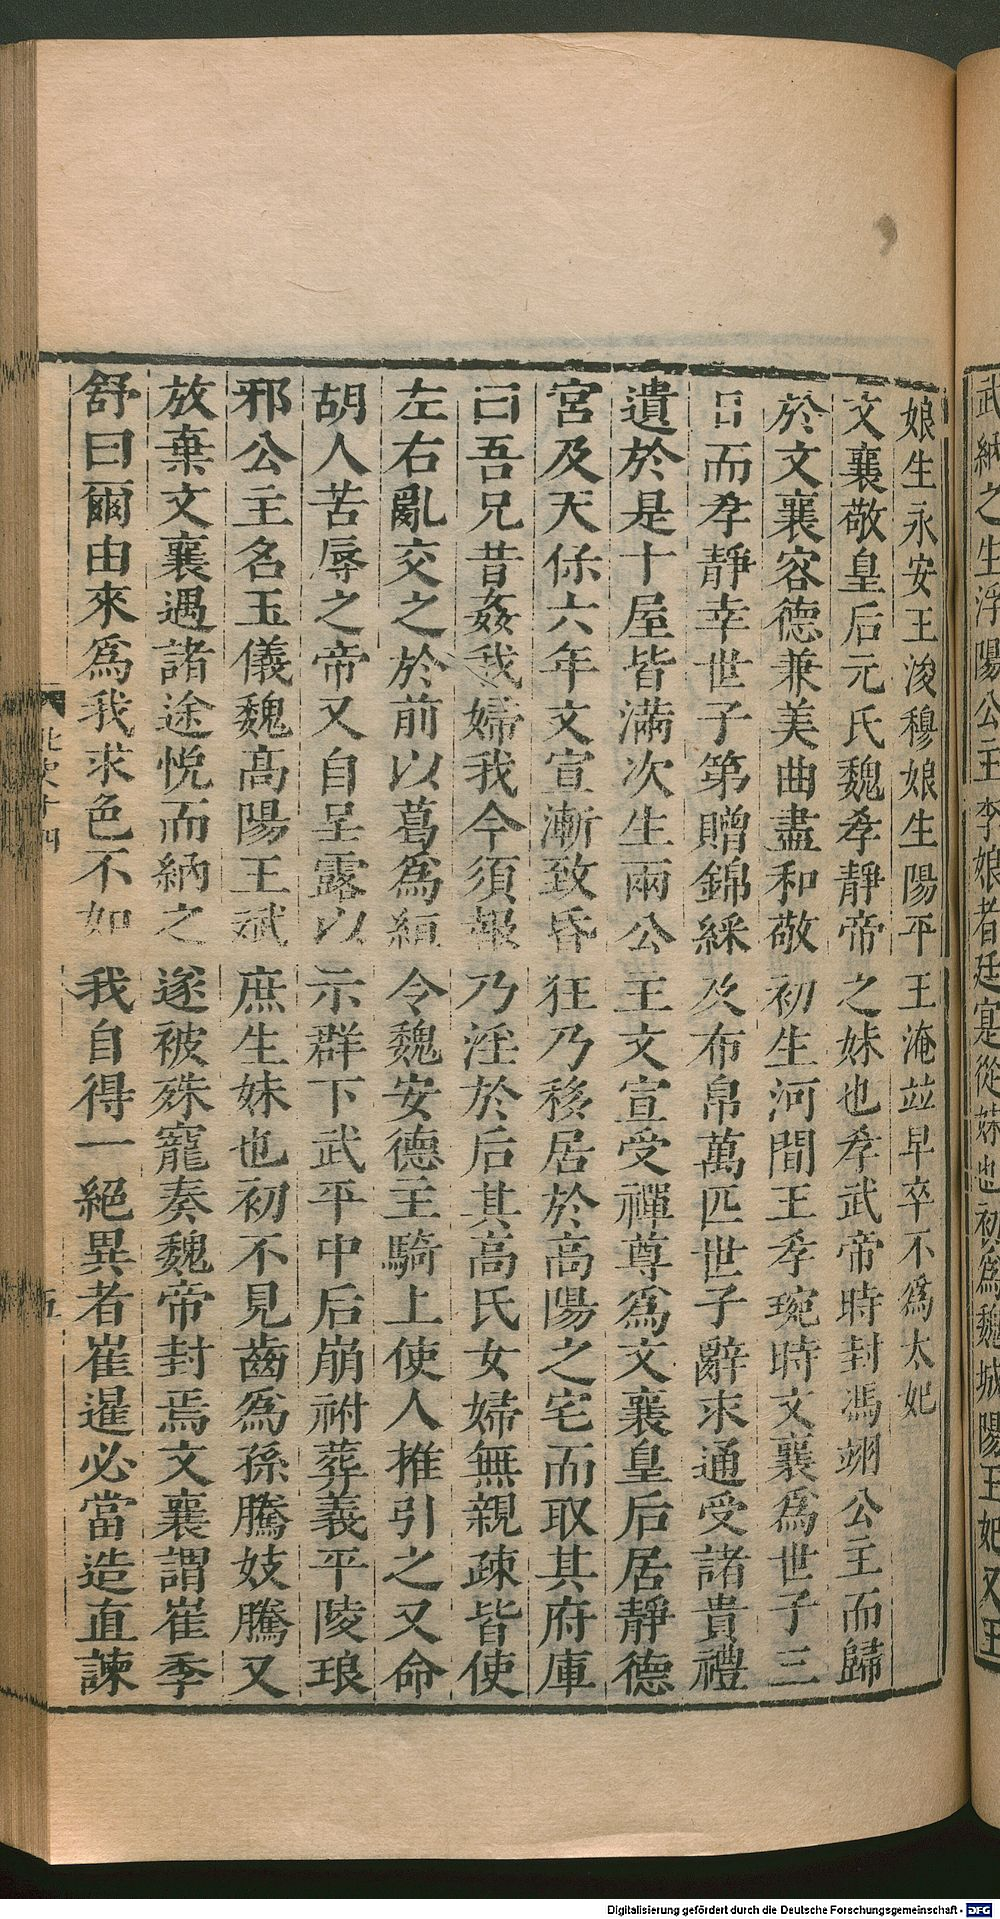 武納之生浮陽公主李娘者廷寔從妹也初爲魏城陽王妃又王
娘生永安王浚穆娘生陽平王淹竝早卒不爲太妃
文襄敬皇后元氏魏孝靜帝之妹也孝武帝時封馮翊公主而歸
於文襄容德兼美曲盡和敬初生河間王孝琬時文襄爲世子三
日而孝靜幸世子第贈錦綵及布帛萬匹世子辭求通受諸貴禮
遺於是十屋皆滿次生兩公主文宣受禪尊爲文襄皇后居靜德
宮及天保六年文宣漸致昏狂乃移居於高陽之宅而取其府庫
曰吾兄昔姦我婦我今須報乃淫於后其高氏女婦無親疎皆使
左右亂交之於前以葛爲絙令魏安德主騎上使人推引之又命
胡人苦辱之帝又自呈露以示群下武平中后崩祔葬義平陵琅
邪公主名玉儀魏高陽王斌庶生妹也初不見齒爲孫騰妓騰又
放棄文襄遇諸途悅而納之遂被殊寵奏魏帝封焉文襄謂崔季
舒曰爾由來爲我求色不如我自得一絕異者崔暹必當造直諫
北史十四
五
Digitalisierung gefördert durch die Deutsche Forschungsgemeinschaft - DFG